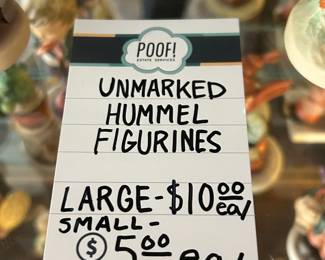 POOF!
ESTATE SERVICES
UNMARKED
HUMMEL
FIGURINES
LARGE-$10.00 ea/
SMALL-
$ 5.00 ea/